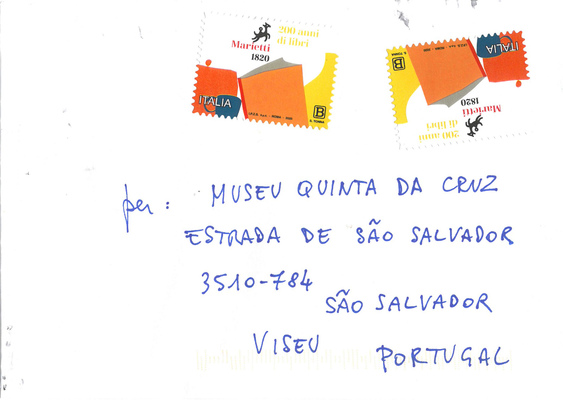 200 anni
di libri
Marietti
1820
ITALIA
B
200 anni
di libri
Marietti
1820
ITALIA
B
per:
MUSEU QUINTA DA CRUZ
ESTRADA DE SÃO SALVADOR
3510-784
SÃO SALVADOR
VISEU
PORTUGAL